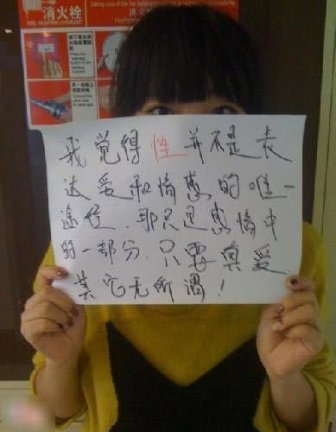 消火栓
我觉得性并不是表
达爱和情感的唯一
途径.那只是感情中
的一部分.只要真爱.
其它无所谓！